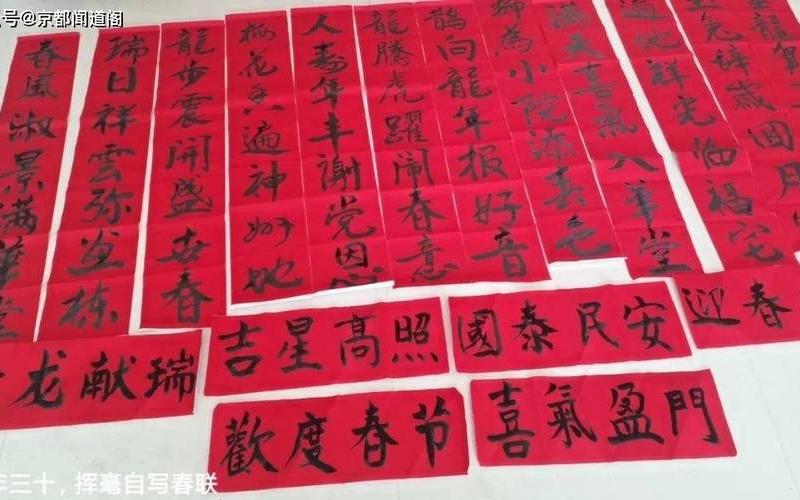 号@京都闻道阁
春風淑景满華堂
瑞日祥雲弥画栋
龍步震開盛世春
梅花香遍神州地
人壽年丰謝党恩
龍騰虎躍闹春意
鵲向龍年报好音
柳為小院添春色
满天喜氣入華堂
遍地祥光临福宅
兔辞歲回月
龍賀
吉星高照
國泰民安
迎春
龙献瑞
歡度春节
喜氣盈門
年三十，挥毫自写春联